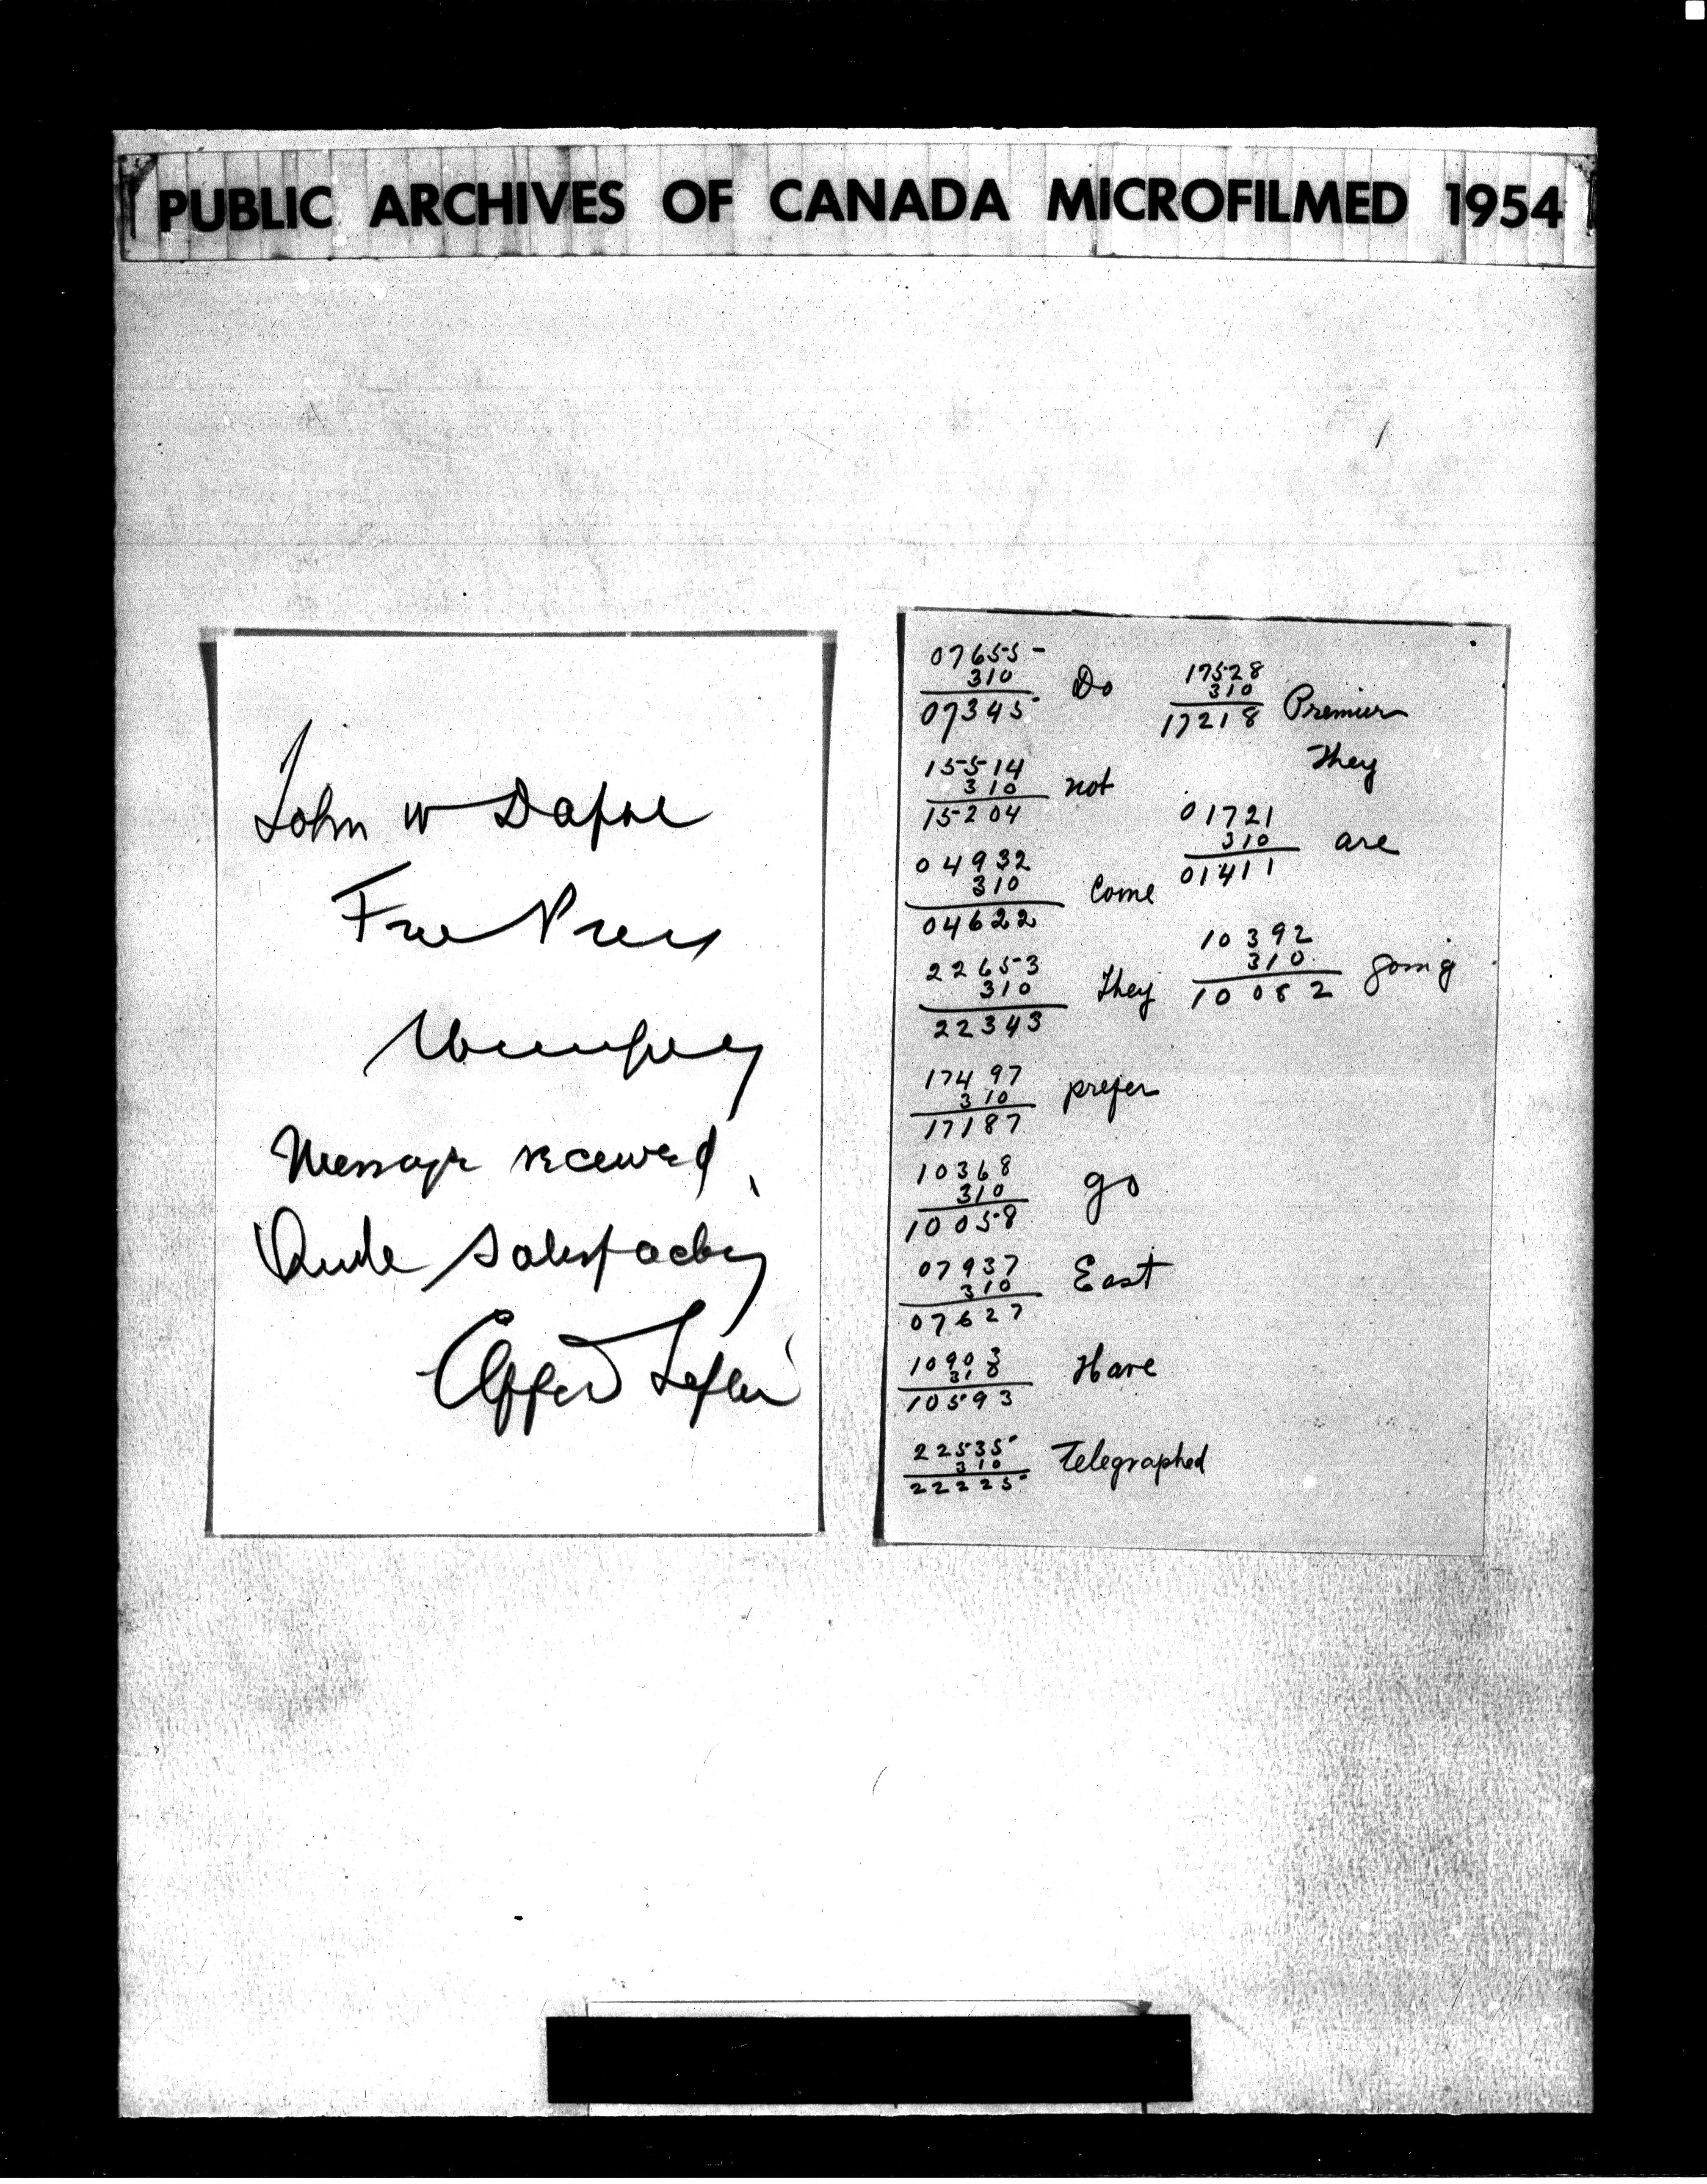 PUBLIC ARCHIVES OF CANADA MICROFILMED 1954
John W Dafoe
Free Press
Winnipeg
Message received
Quite satisfactory
Clifford Sifton
07655
310
07345 Do
15514
310 not
15204
04932
310 Come
04622
22653
310 They
22343
17497
310 prefer
17187
10368
310 go
10058
07937
310 East
07627
10903
310 Have
10593
22535
310 Telegraphed
22225
17528
310 Premier
17218
They
01721
310 are
01411
10392
310 going
10082